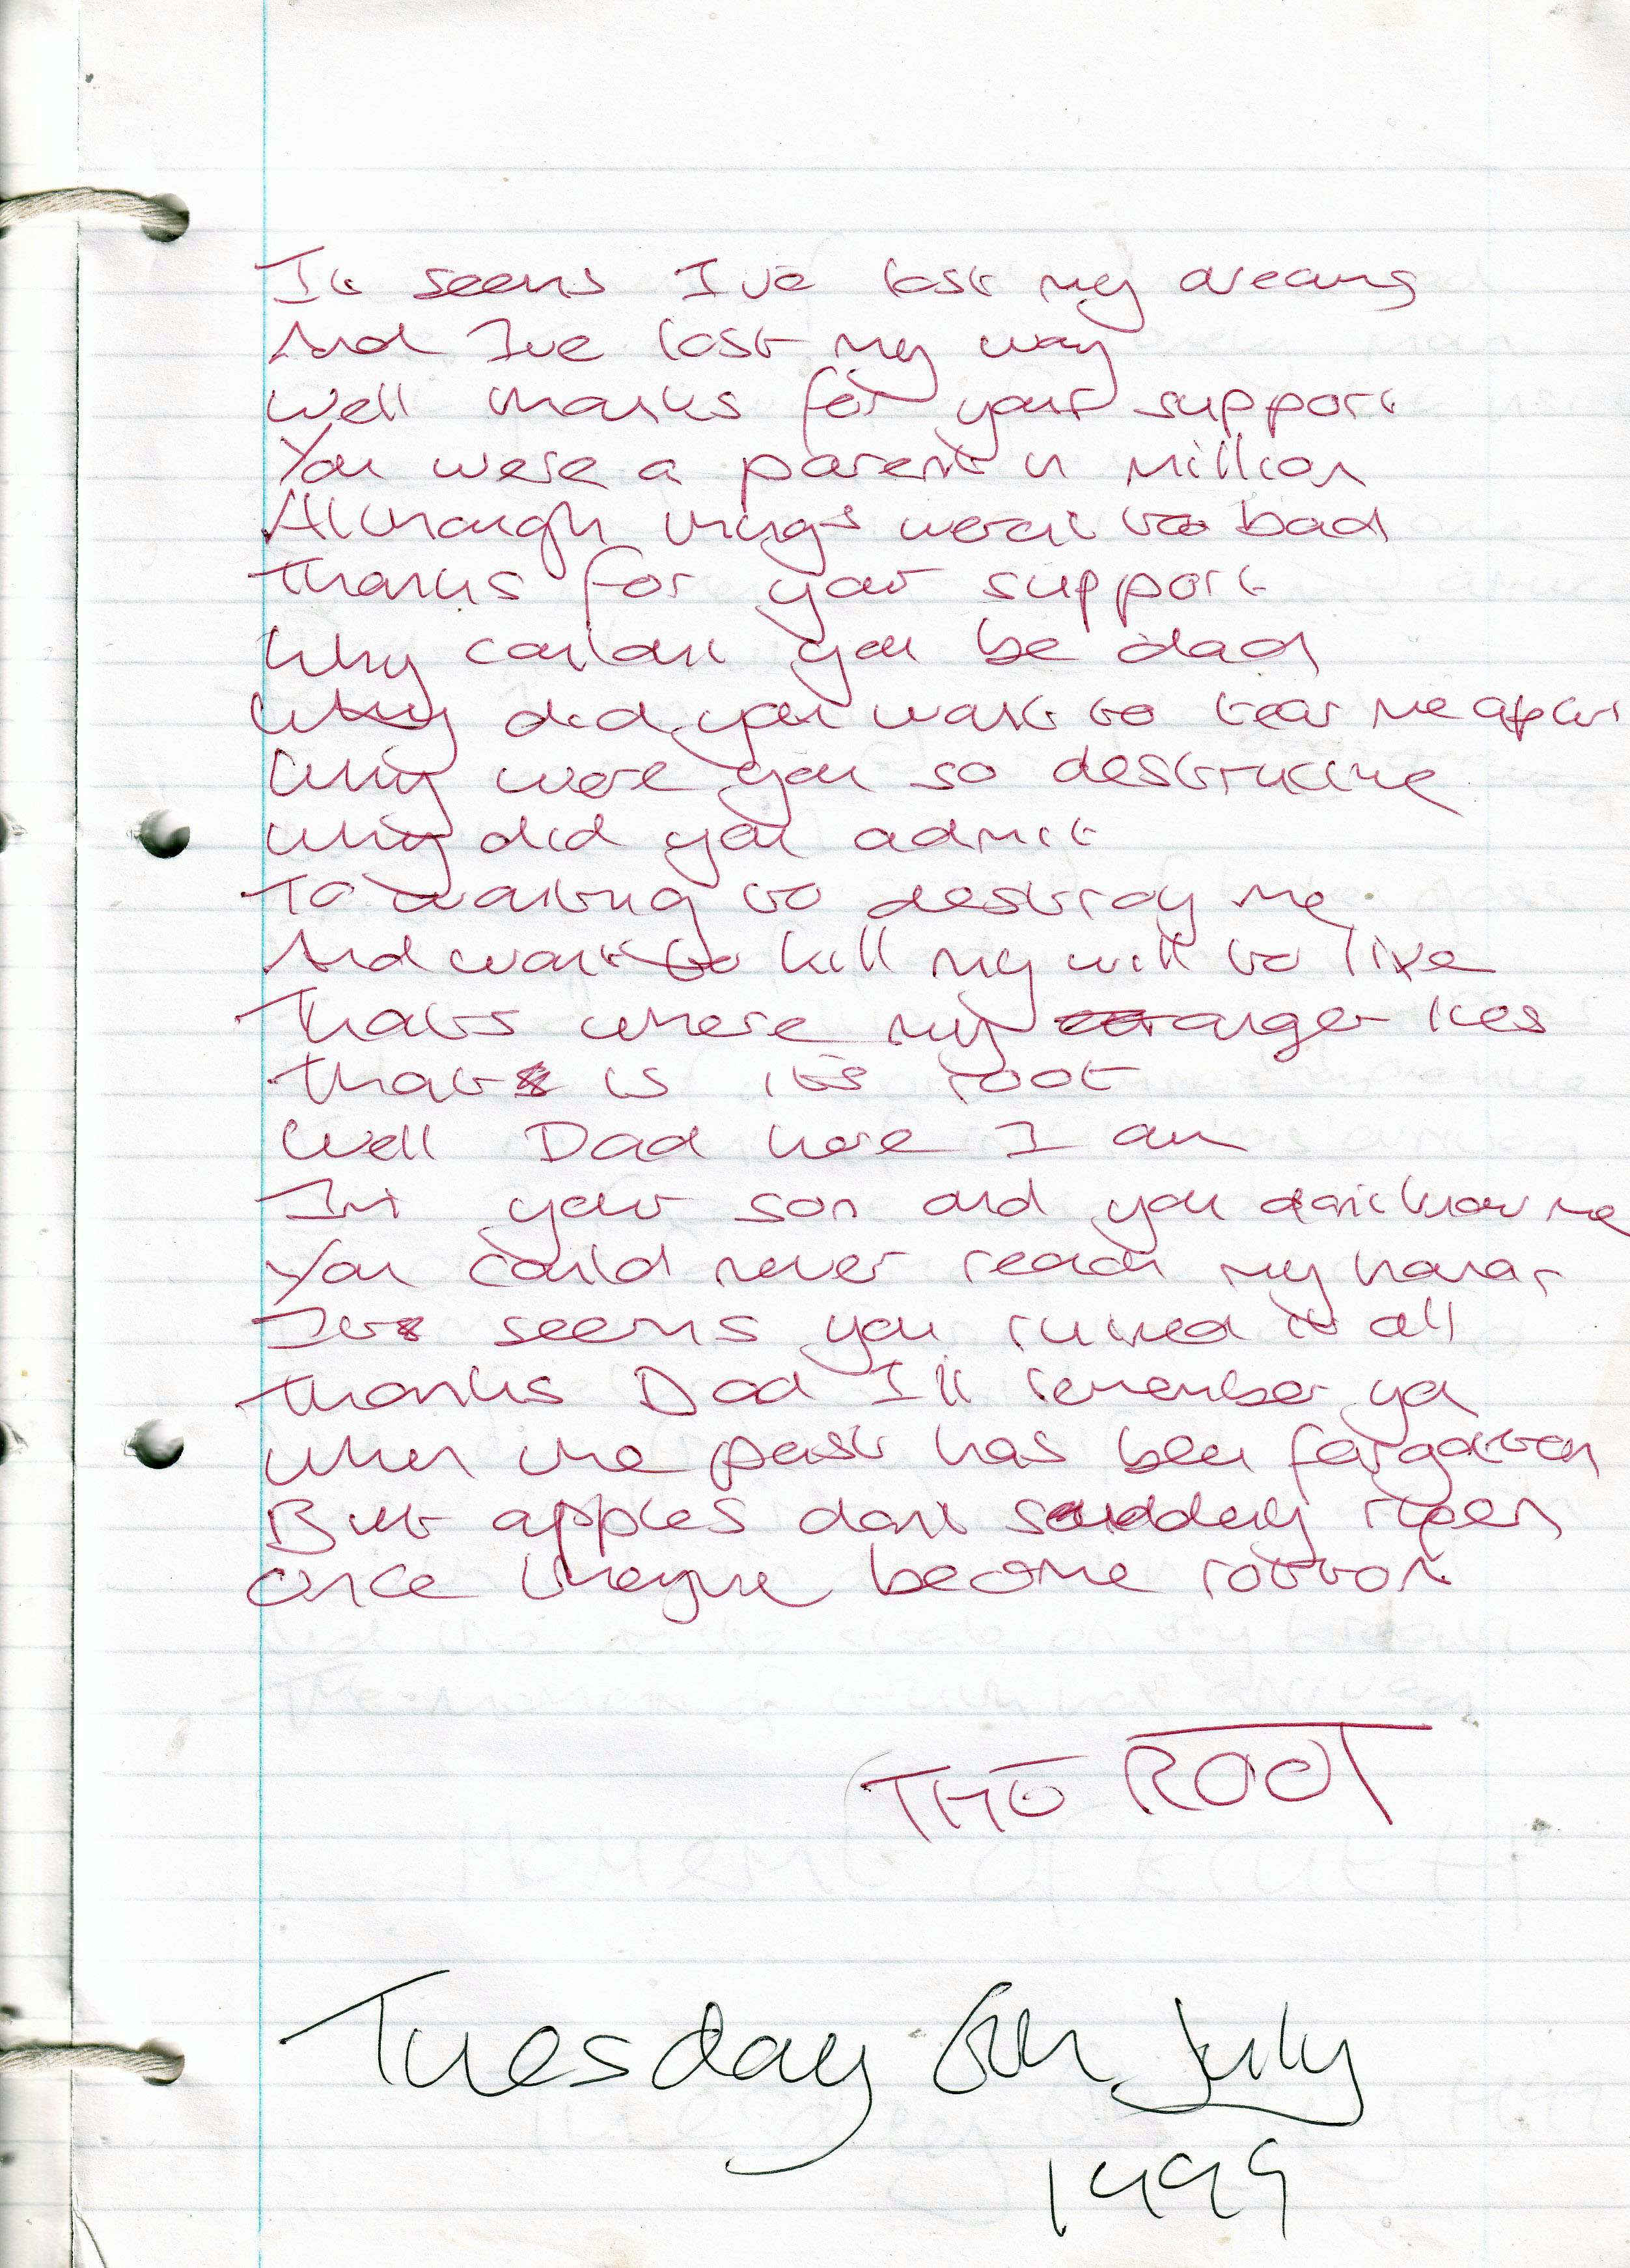 It seems Ive lost my dreams
And Ive lost my way
Well thanks for your support
You were a parent in million
Although things werent too bad
Thanks for your support
Why couldnt you be dad
Why did you want to tear me apart
Why were you so destructive
Why did you admit
To wanting to destroy me
And want to kill my will to live
Thats where my anger lies
That is its root
Well Dad here I am
Im your son and you dont know me
You could never reach my
It seems you ruined it all
Thanks Dad Ill remember ya
When the past has been forgotten
But apples dont suddenly ripen
Once theyve become rotton
THE ROOT
Tuesday 6th July
1999